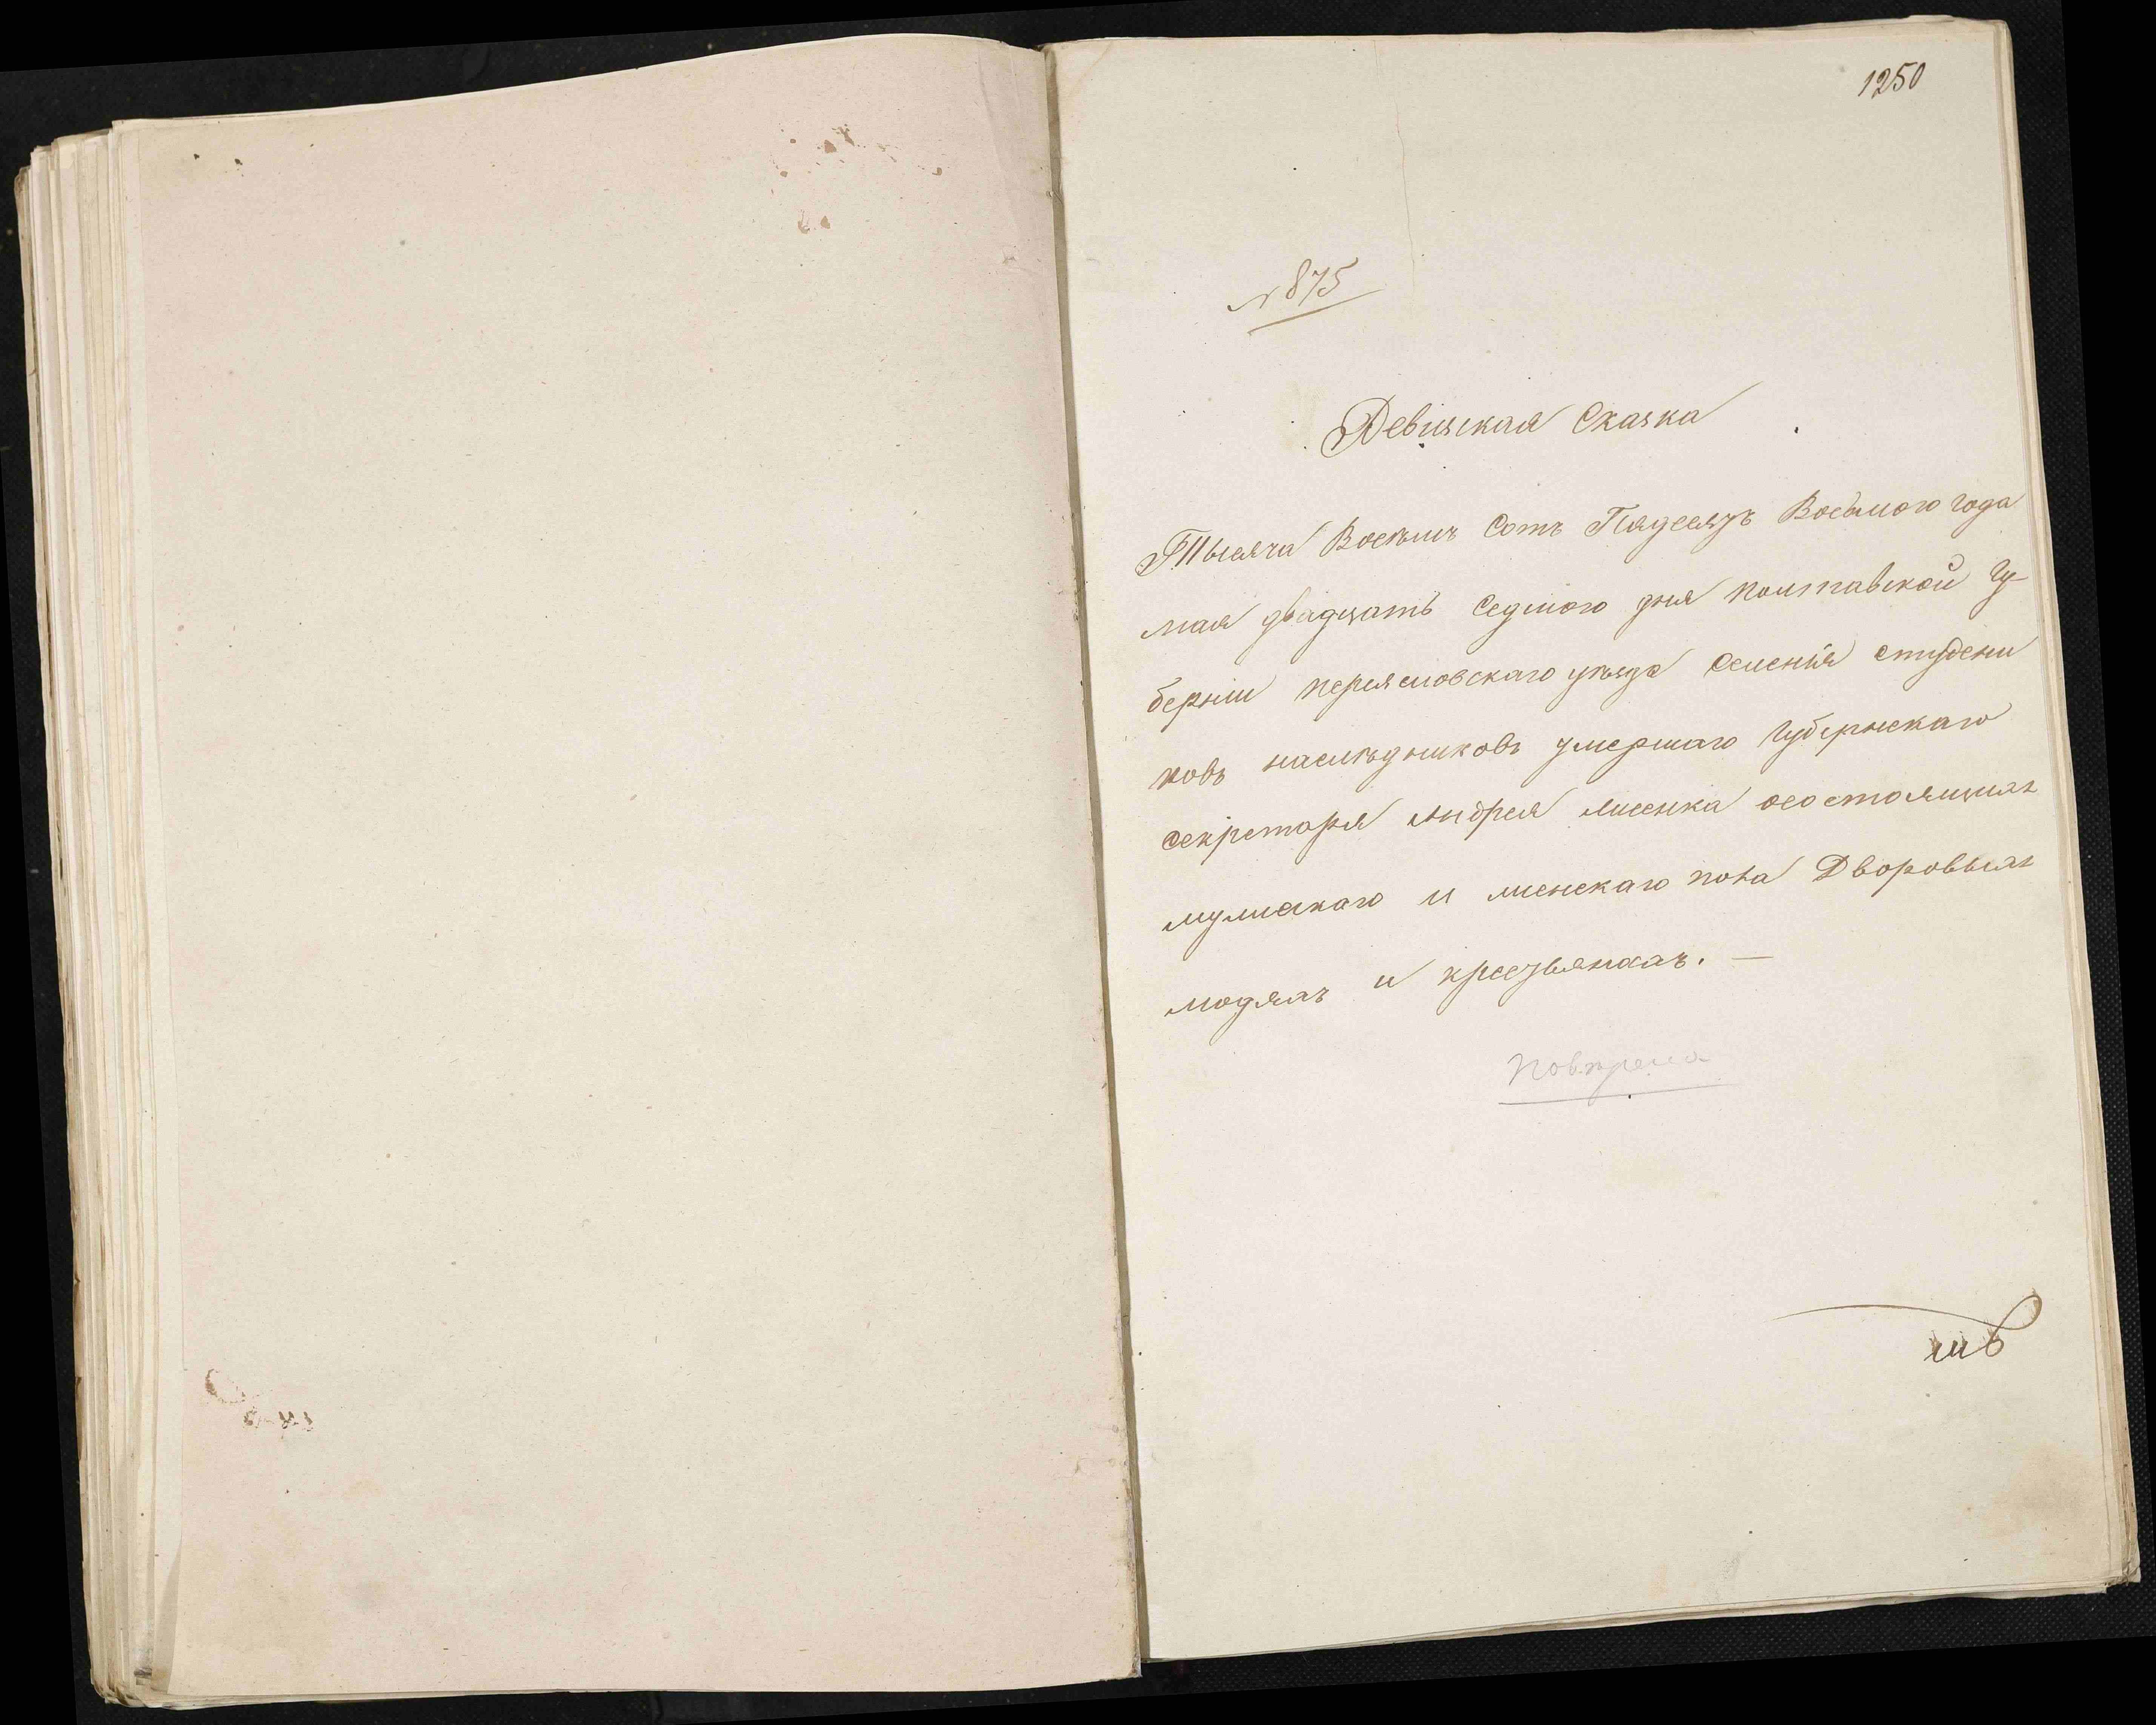 1250
№ 875
Ревизская Сказка
Тысяча Восемь Сотъ Пядесятъ Восьмого года
мая двадцать Седмого дня полтавской Гу
берніи переясловскаго уѣзда Селенія студени
ковъ наслѣдниковъ умершаго Губернскаго
Секретаря Андрея лисенка осостоящихъ
мужскаго и женскаго пола Дворовыхъ
людяхъ и крестьянахъ. —
повѣрена